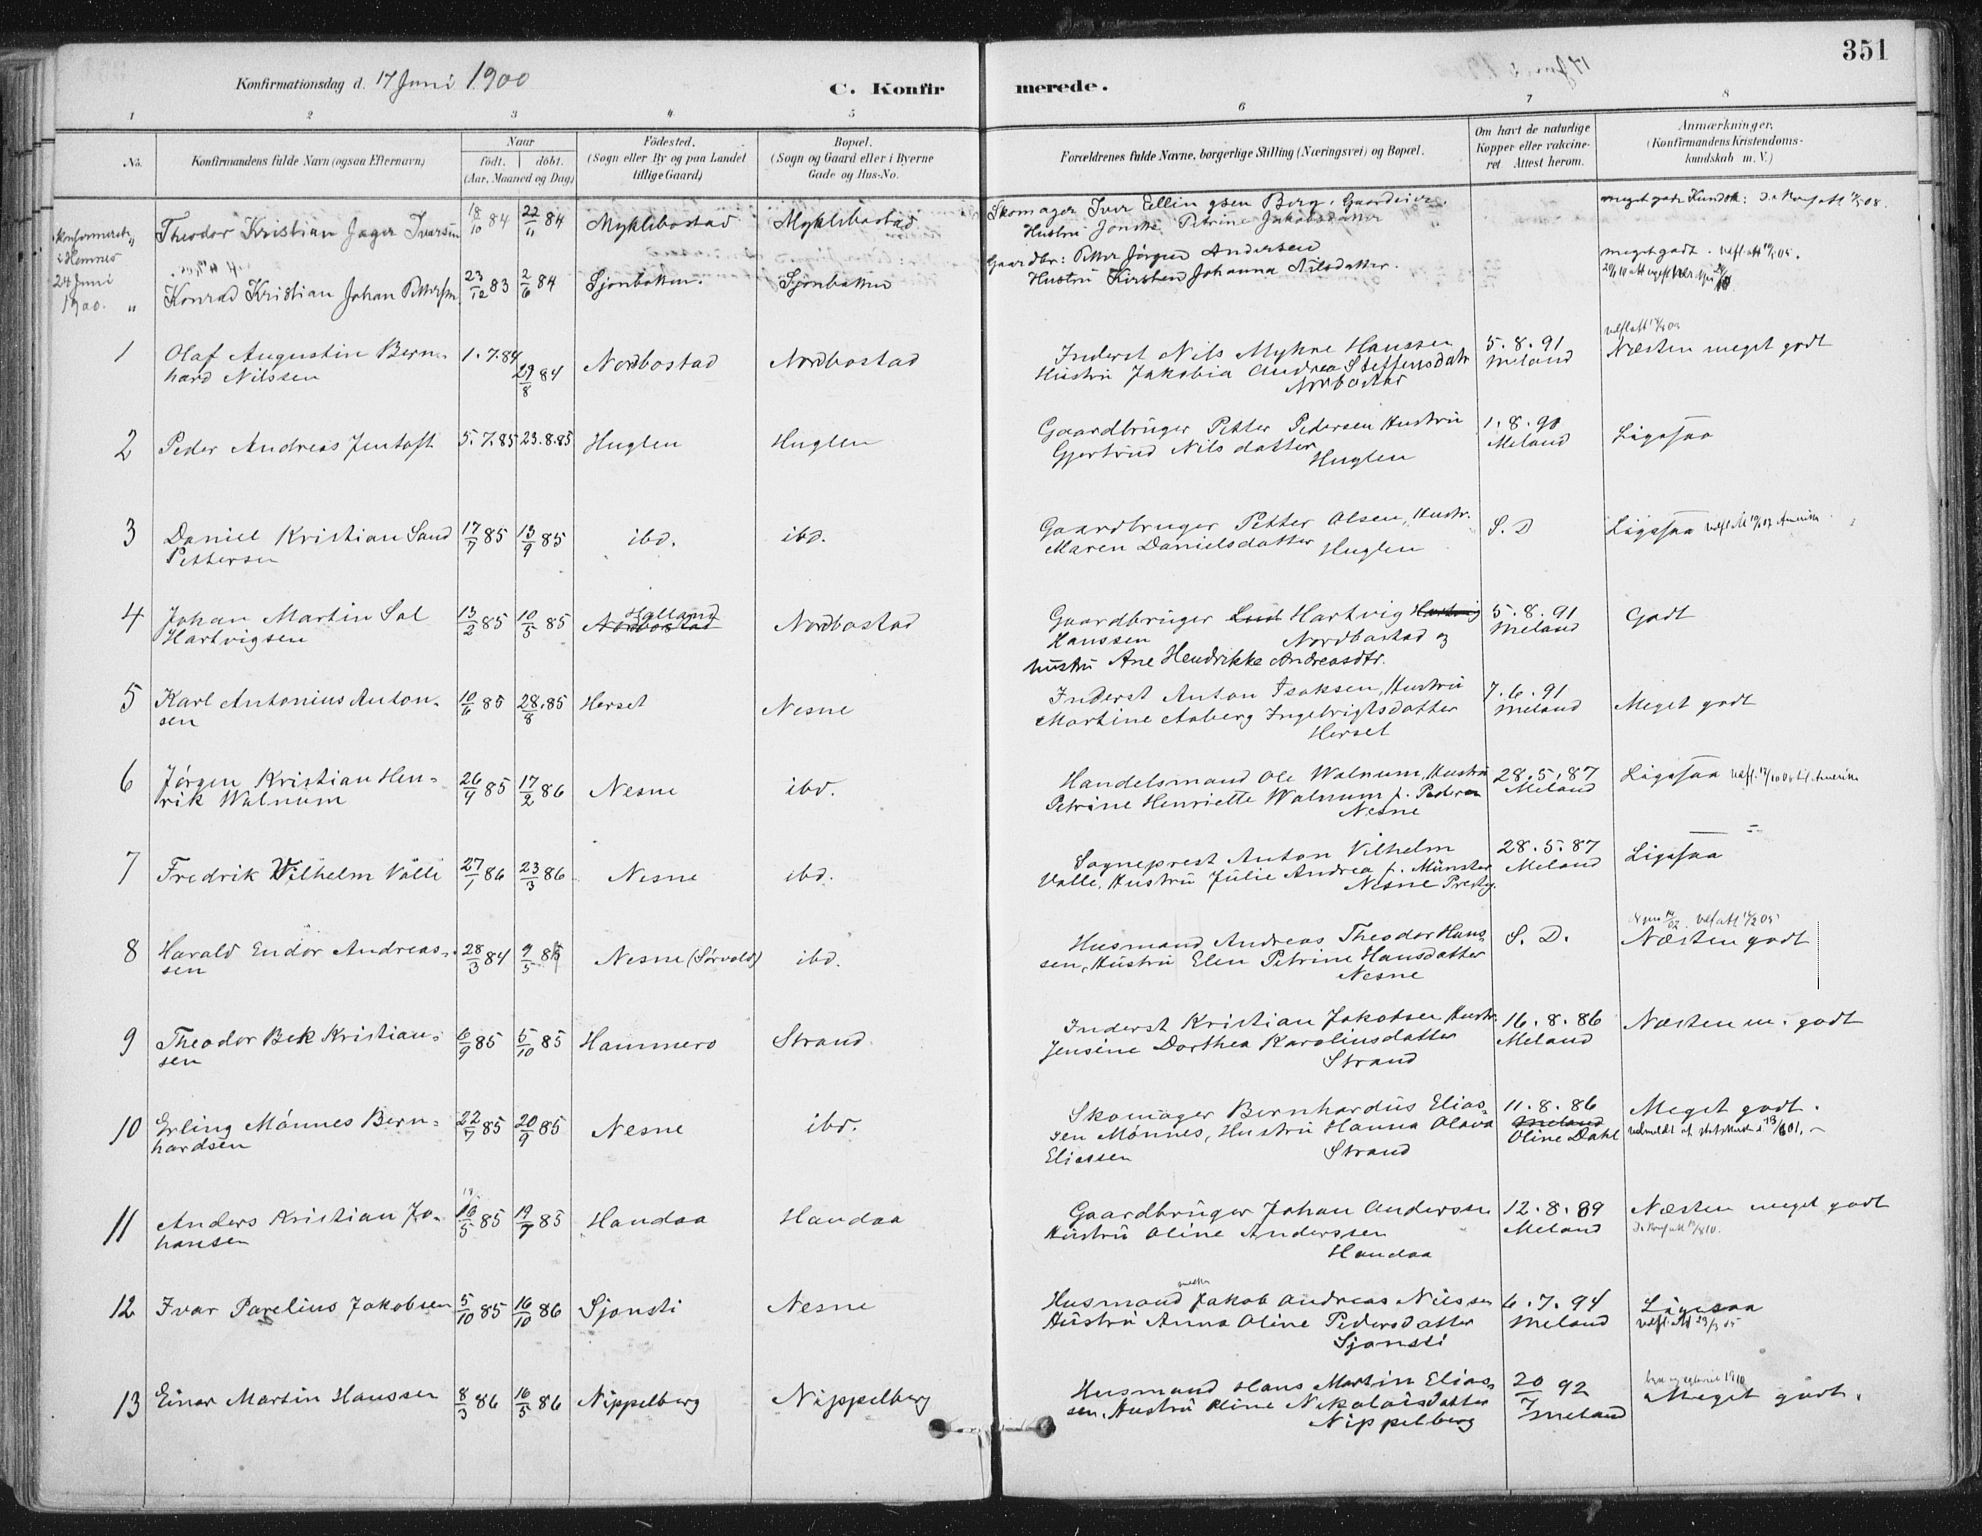 351
Konfirmationsdag d. 17 Juni 1900
C. Konfirmerede.
1 2 3 4 5 6 7 8
No.
Konfirmandens fulde Navn (ogsaa Efternavn)
Naar
født. døbt.
(Aar, Maaned og Dag)
Fødested.
(Sogn eller By og paa Landet
tillige Gaard)
Bopæl.
(Sogn og Gaard eller i Byerne
Gade og Hus-No.
Forældrenes fulde Navne, borgerlige Stilling (Næringsvei) og Bopæl.
Om havt de naturlige
Kopper eller vakcine-
ret Attest herom.
Anmærkninger.
(Konfirmandens Kristendoms-
kundskab m. V.)
Konfirmeret
i Hemnes
24 Juni
1900.
" Theodor Kristian Jager Ivarsen 18/10 84 22/11 84 Myklebostad Myklebostad
Skomager Iver Ellingsen Berg, Gaardeier.
Hustru Petrine Jakobsdatter
meget godt Kundsk:
" Konrad Kristian Johan Pettersen 23/12 83 2/6 84 Sjonbotten. Sjonbotten
Gaardbr: Petter Jørgen Andersen
Hustru Kirsten Johanna Nilsdatter.
meget godt.
1 Olaf Augustin Bern- 1.7.84 29/8 84 Nordbostad Nordbostad
hard Nilssen
Inderst Nils Myhre Hanssen
Hustru Jakobia Andrea Steffensdatr
Nordbostad
5.8.91
Meland
Næsten meget godt
2 Peder Andreas Jentoft 5.7.85 23.8.85 Huglen Huglen
Gaardbruger Petter Pedersen Hustru
Gjertrud Nilsdatter
Huglen
1.8.90
Meland
Ligesaa
3 Daniel Kristian Sand 17/7 85 13/9 85 ibd. ibd.
Pettersen
Gaardbruger Petter Olsen, Hustr.
Maren Danielsdatter
Huglen
S. D
Ligesaa Amerika
4 Johan Martin Sol 13/2 85 10/5 85 Nordbostad Nordbostad
Hartvigsen
Gaardbruger Hartvig
Hanssen Nordbostad og
hustru Ane Hendrikke Andreasdtr.
5.8.91
Meland
Godt
5 Karl Antonius Anton- 10/6 85 28/8.85 Herset Nesne
sen
Inderst Anton Isaksen, Hustru
Martine Aaberg Ingebrigtsdatter
Herset
7.6.91
Meland
Meget godt
6 Jørgen Kristian Hen- 26/4 85 17/2 86 Nesne ibd.
rik Walnum
Handelsmand Ole Walnum, Hustru
Petrine Henriette Walnum f. Pedersen
Nesne
28.5.87
Meland
Ligesaa til Amerika
7 Fredrik Vilhelm Valle 27/1 86 23/3 86 Nesne ibd.
Sogneprest Anton Vilhelm
Valle, Hustru Julie Andrea f. Münster
Nesne Prestg.
28.5.87
Meland
Ligesaa
8 Harald Endor Andreas- 28/3 84 9/5 85 Nesne (Sørvold) ibd.
sen
Husmand Andreas Theodor Hans-
sen, Hustru Elen Petrine Hansdatter
Nesne
S. D.
Næsten godt
9 Theodor Bek Kristian- 6/9 85 5/10 85 Hammero Strand
sen
Inderst Kristian Jakobsen Hustr.
Jensine Dorthea Karolinsdatter
Strand
16.8.86
Meland
Næsten m. godt
10 Erling Mónnes Bern- 22/7 85 20/9 85 Nesne ibd.
hardsen
Skomager Bernhardus Elias-
sen Mónnes, Hustru Hanna Olava
Eliassen Strand
11.8.86
Meland
Oline Dahl
Meget godt.
11 Anders Kristian Jo- 16/5 85 19/7 85 Handaa Handaa
hansen
Gaardbruger Johan Anderssen
Hustru Oline Anderssen
Handaa
12.8.89
Meland
Næsten meget godt
12 Ivar Parelius Jakobsen 5/10 85 16/10 86 Sjonsti Nesne
Husmand Jakob Andreas Nilssen
Hustru Anna Oline Pedersdatter
Sjonsti
6.7.94
Meland
Ligesaa
13 Einar Martin Hanssen 8/3 86 16/5 86 Nippelberg Nippelberg
Husmand Hans Martin Elias-
sen, Hustru Oline Nikolaisdatter
Nippelberg
20/7 92
Meland
Meget godt.